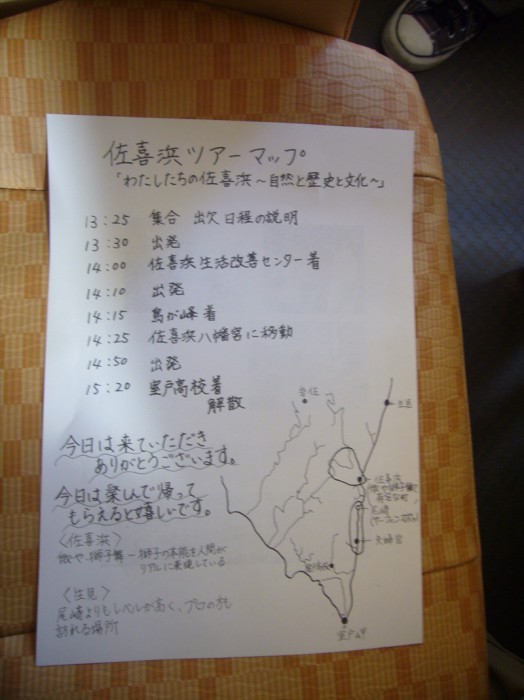 佐喜浜ツアーマップ
「わたしたちの佐喜浜～自然と歴史と文化～」
13:25 集合 出欠 日程の説明
13:30 出発
14:00 佐喜浜生活改善センター着
14:10 出発
14:15 鳥が峰着
14:25 佐喜浜八幡宮に移動
14:50 出発
15:20 室戸高校着
解散
今日は来ていただき
ありがとうございます。
今日は楽しんで帰って
もらえると嬉しいです。
〈佐喜浜〉
獅子舞ー獅子の本能を人間が
リアルに表現している
〈生見〉
尾崎よりもレベルが高く、プロの方も
訪れる場所
佐喜浜
尾崎
夫婦岩
室戸岬